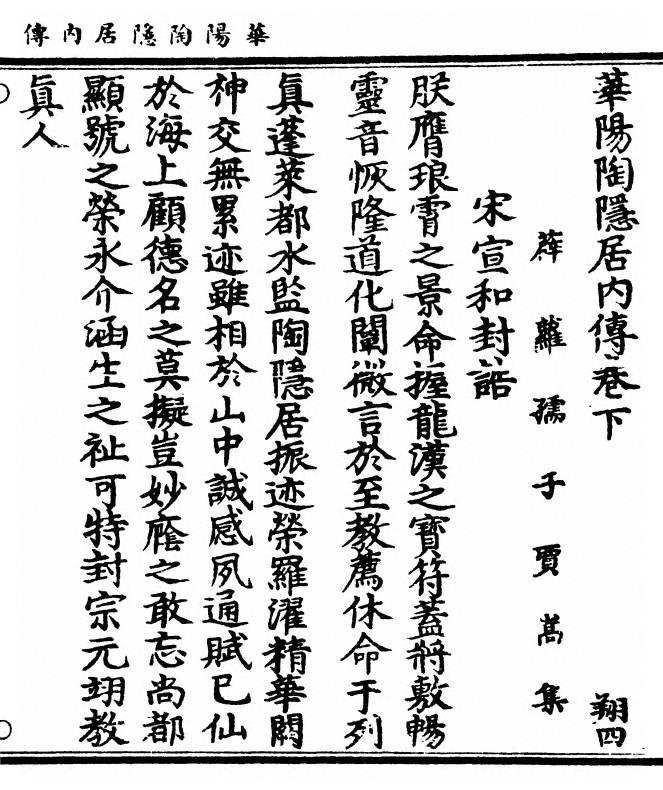 華陽陶隱居内傳
華陽陶隱居内傳卷下
翔四
薜蘿孺子賈嵩集
宋宣和封誥
朕膺琅霄之景命握龍漢之寶符蓋將敷暢
靈音恢隆道化闡微言於至教薦休命于列
眞蓬萊都水監陶隱居振迹榮羅濯精華闕
神交無累迹雖相於山中誠感夙通賦已仙
於海上顧德名之莫擬豈妙廕之敢忘尚都
顯號之榮永介涵生之祉可特封宗元翊教
眞人